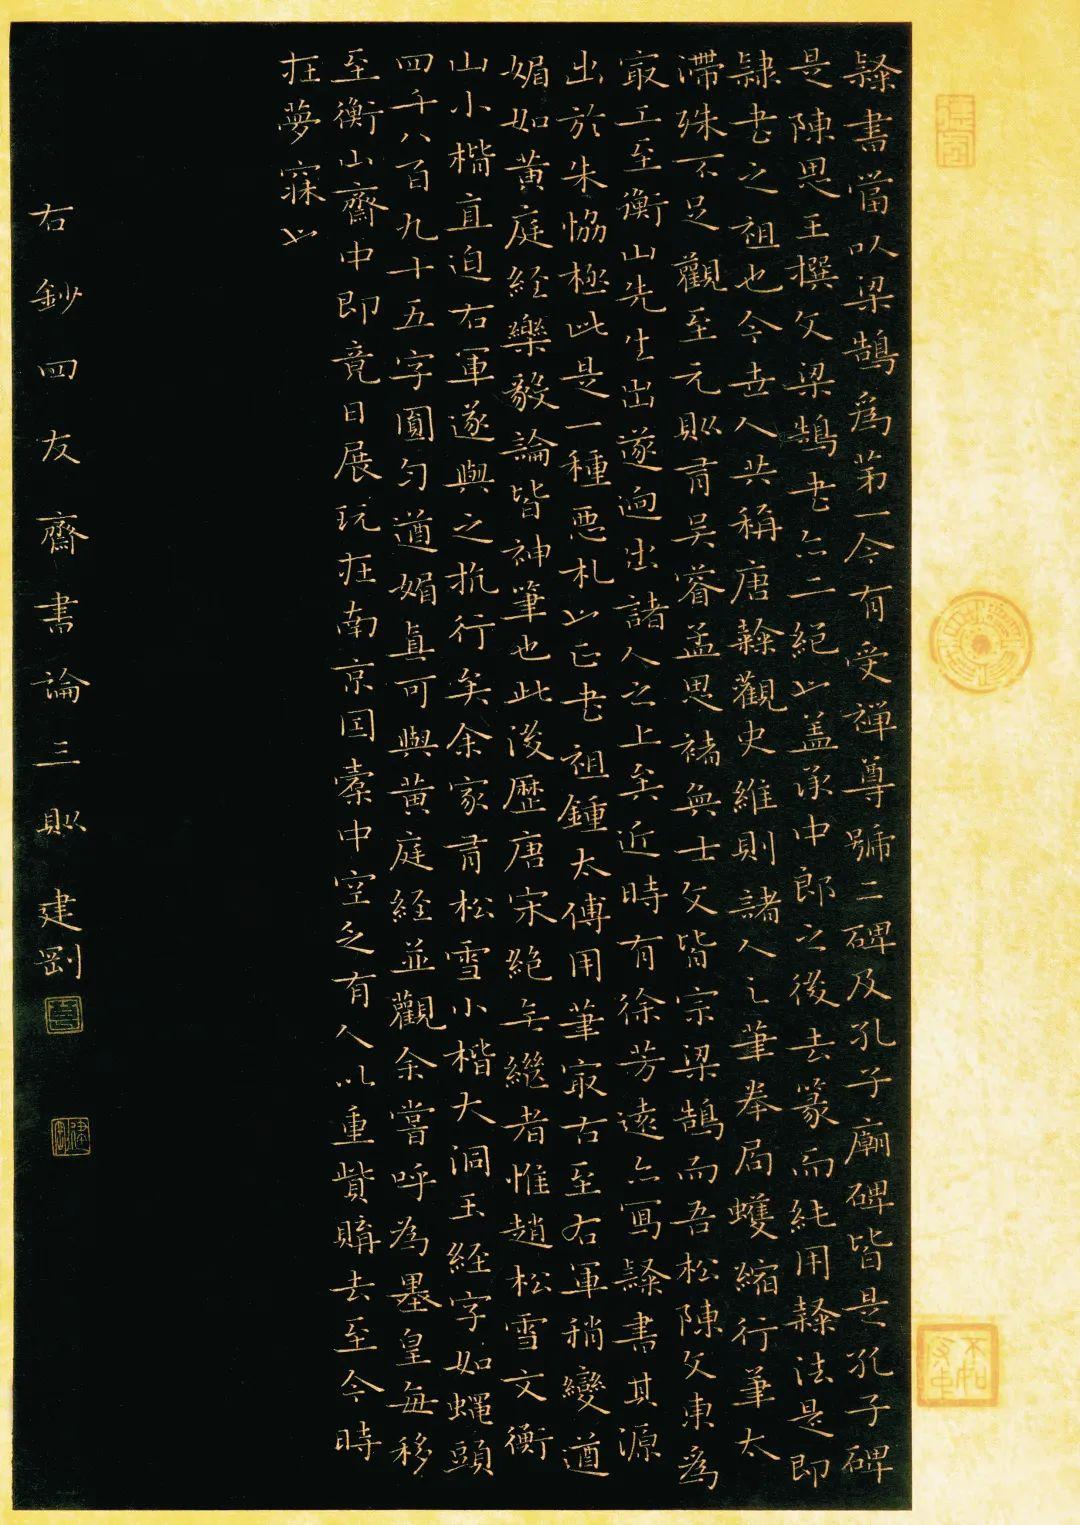 隸書當以梁鵠為第一今有受禪尊號二碑及孔子廟碑皆是孔子碑
是陳思王撰文梁鵠書亦二絕也蓋承中郎之後去篆而純用隸法是即
隸書之祖也今世人共稱唐隸觀史維則諸人之筆拳局蠖縮行筆太
滯殊不足觀至元則有吳睿孟思褚奐士文皆宗梁鵠而吾松陳文東為
最工至衡山先生出遂迥出諸人之上矣近時有徐芳遠亦寫隸書其源
出於朱協極此是一種惡札也正書祖鍾太傅用筆最古至右軍稍變遒
媚如黃庭經樂毅論皆神筆也此後歷唐宋絕無繼者惟趙松雪文衡
山小楷直迫右軍遂與之抗行矣余家有松雪小楷大洞玉經字如蠅頭
四千八百九十五字圓勻遒媚真可與黃庭經並觀余嘗呼為墨皇每移
至衡山齋中即竟日展玩在南京因橐中空乏有人以重貲購去至今時
在夢寐也
右鈔四友齋書論三則建剛